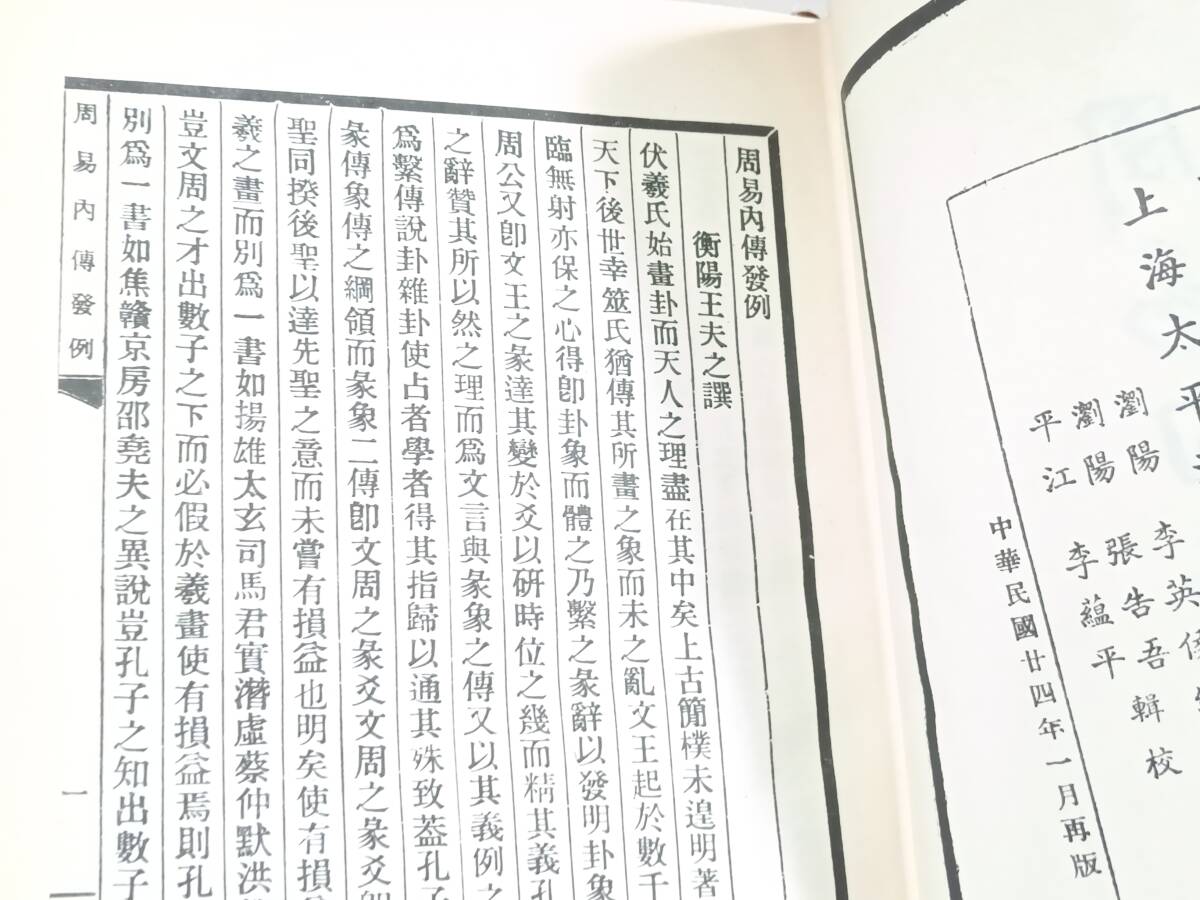 上海太平
瀏陽 李英
瀏陽 張告吾 輯校
平江 李蘊平
中華民國廿四年一月再版
周易內傳發例
衡陽王夫之譔
伏羲氏始畫卦而天人之理盡在其中矣上古簡樸未遑明著
天下後世幸筮氏猶傳其所畫之象而未之亂文王起於數千
臨無射亦保之心得卽卦象而體之乃繫之彖辭以發明卦象
周公又卽文王之彖達其變於爻以研時位之幾而精其義孔
之辭贊其所以然之理而爲文言與彖象之傳又以其義例之
爲繫傳說卦雜卦使占者學者得其指歸以通其殊致葢孔子
彖傳象傳之綱領而彖象二傳卽文周之彖爻文周之彖爻卽
聖同揆後聖以達先聖之意而未嘗有損益也明矣使有損
羲之畫而別爲一書如揚雄太玄司馬君實潛虛蔡仲默洪
豈文周之才出數子之下而必假於羲畫使有損益焉則孔
別爲一書如焦贛京房邵堯夫之異說豈孔子之知出數子
周易內傳發例
一